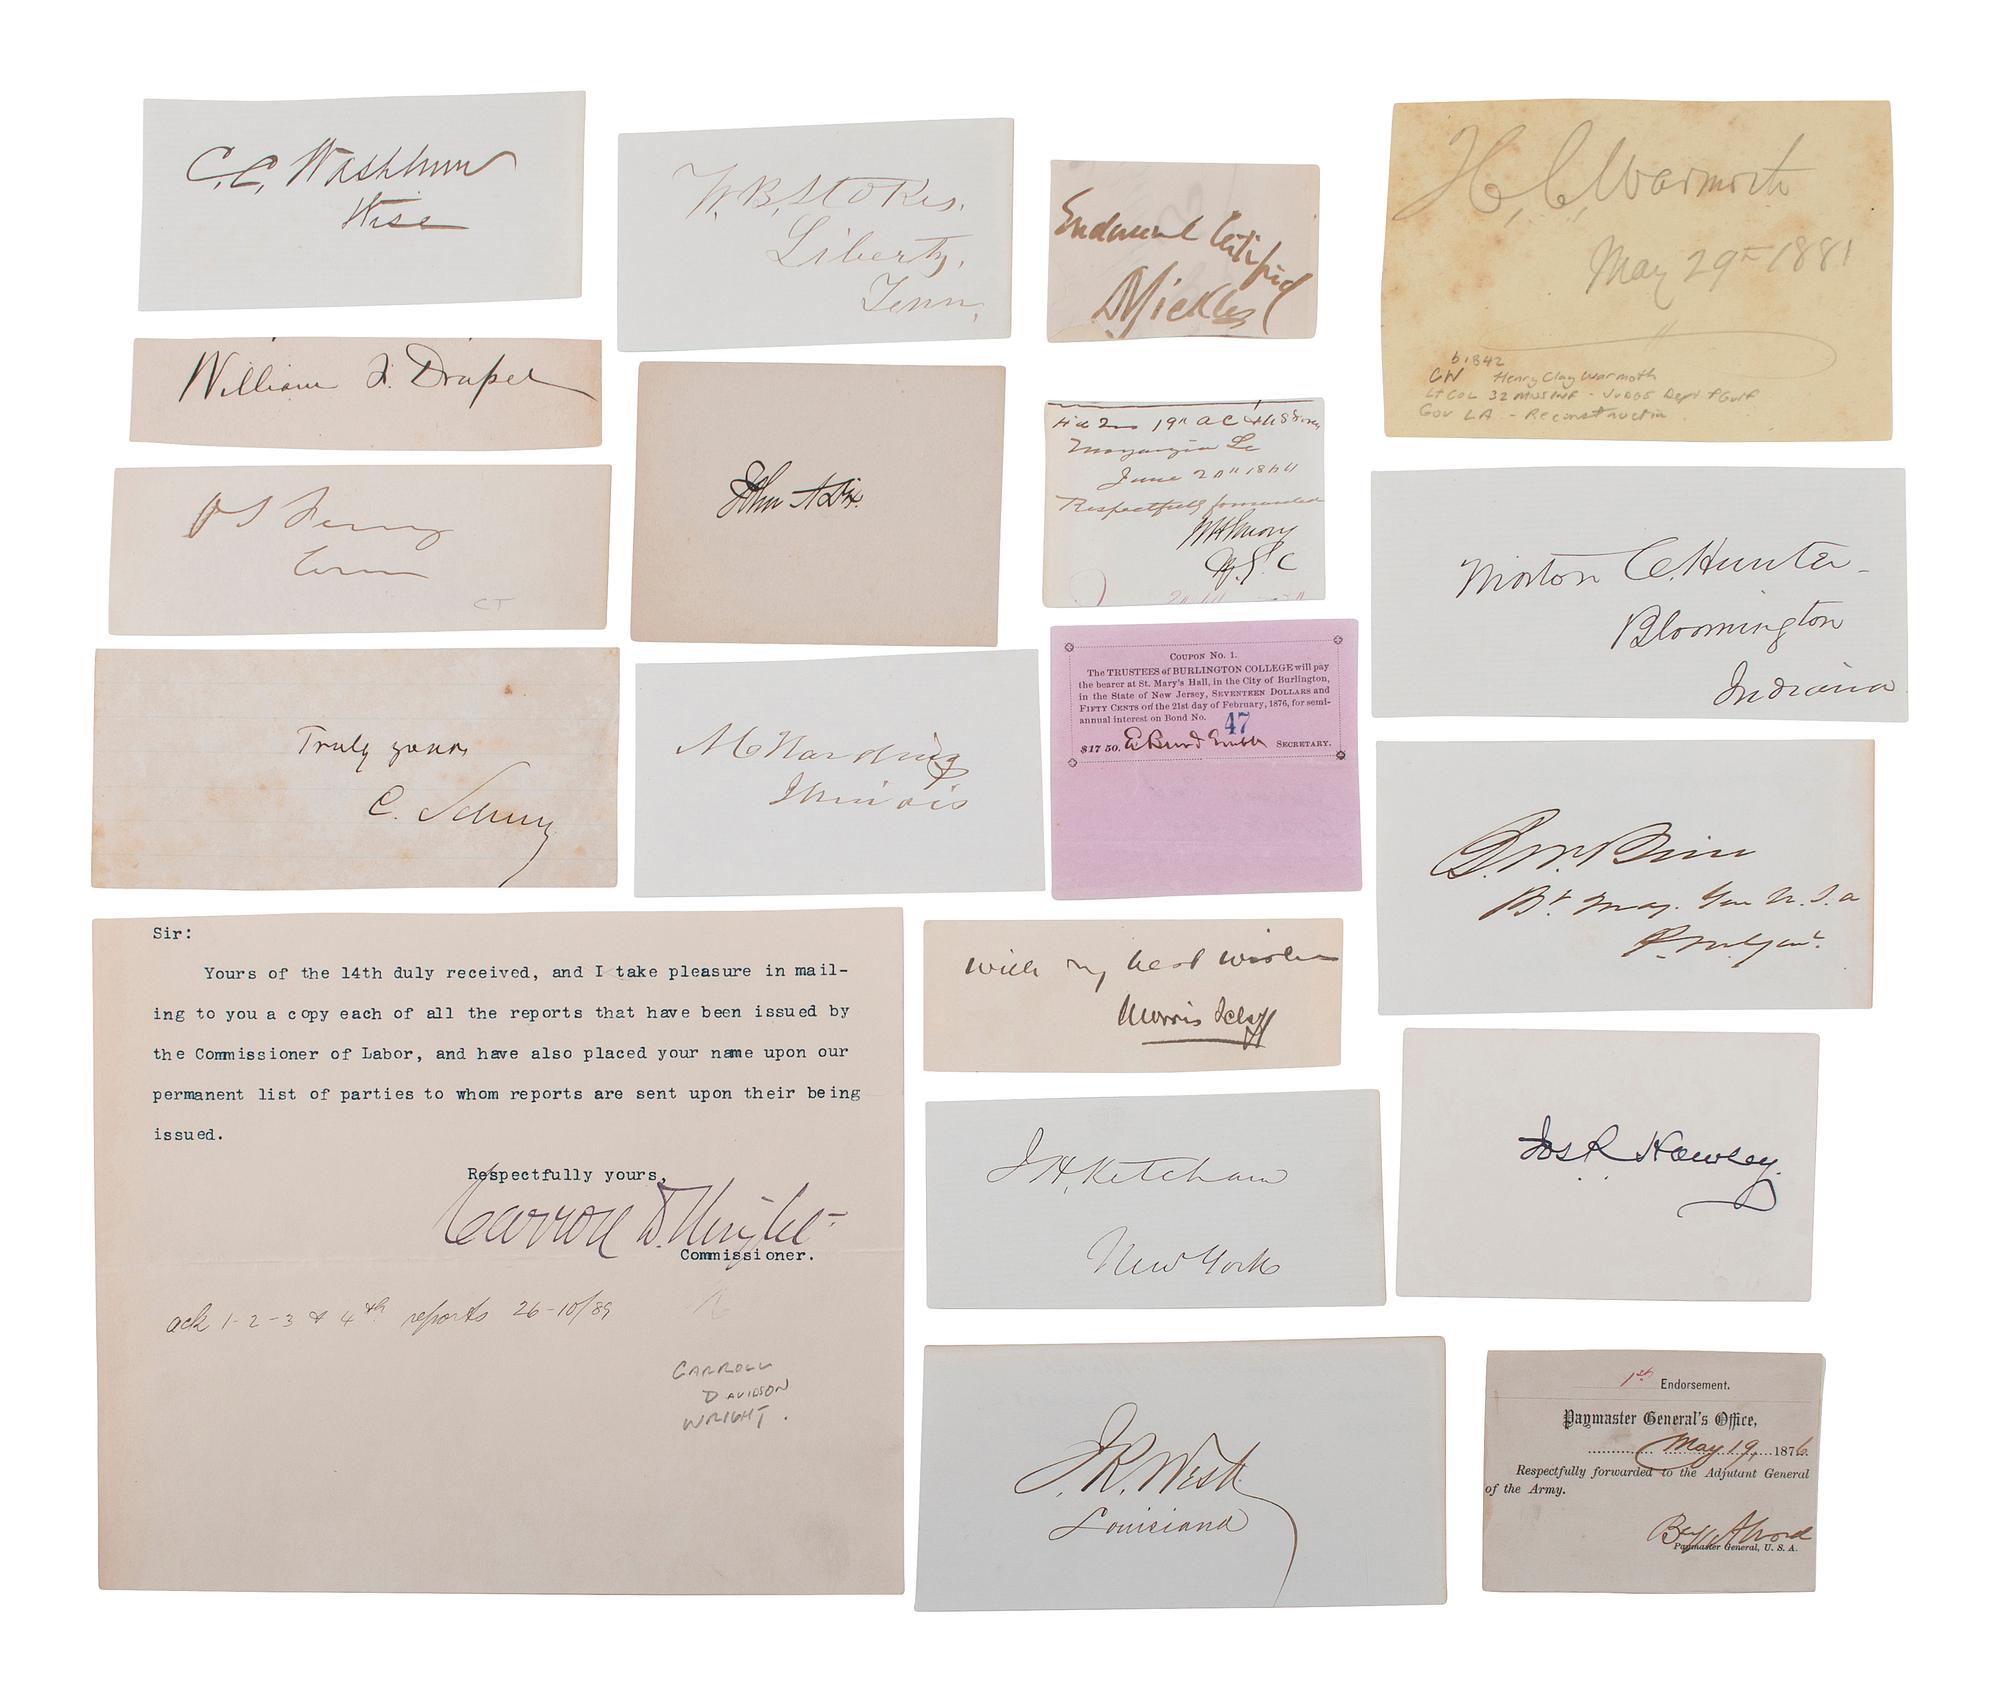 C.C. Washburn
Wisc
William F. Draper
O S Ferry
Conn
CT
Truly yours
C. Schurz
Sir:
Yours of the 14th duly received, and I take pleasure in mail-
ing to you a copy each of all the reports that have been issued by
the Commissioner of Labor, and have also placed your name upon our
permanent list of parties to whom reports are sent upon their being
issued.
Respectfully yours,
Carroll D. Wright
Commissioner.
ack 1-2-3 & 4th reports 26-10/89
CARROLL
DAVIDSON
WRIGHT.
W.B. Stokes.
Liberty,
Tenn.
John A Dix.
A C Harding
Illinois
Certified
D Sickles
19th A C
June 20th 1864
Respectfully forwarded
WH Emory
COUPON No. 1.
The TRUSTEES of BURLINGTON COLLEGE will pay
the bearer at St. Mary's Hall, in the City of Burlington,
in the State of New Jersey, SEVENTEEN DOLLARS and
FIFTY CENTS on the 21st day of February, 1876, for semi-
annual interest on Bond No. 47
$17 50. E Burd Grubb SECRETARY.
with my best wishes
Morris Schaff
J H. Ketcham
New York
J. R. West
Louisiana
H. C. Warmoth
May 29th 1881
b 1842
CW Henry Clay Warmoth
Lt Col 32 MO INF - Judge Dept of Gulf
Gov LA - Reconstruction
Morton C. Hunter
Bloomington
Indiana
B. W. Brice
Bt. Maj. Gen U. S. A
P. M. Gen'l.
Jos R Hawley.
1st Endorsement.
Paymaster General's Office,
May 19, 1876.
Respectfully forwarded to the Adjutant General
of the Army.
Benj Alvord
Paymaster General, U. S. A.